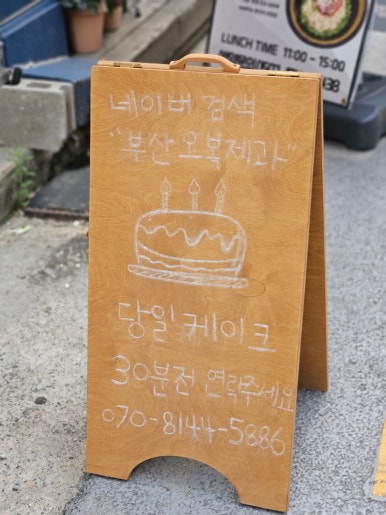 LUNCH TIME 11:00 - 15:00
네이버 검색
"부산 오복제과"
당일케이크
30분전 연락주세요
070-8144-5886